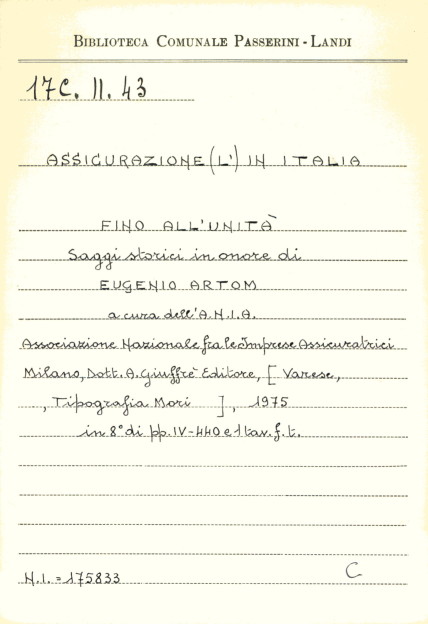 BIBLIOTECA COMUNALE PASSERINI - LANDI
17C. II. 43
ASSICURAZIONE (L') IN ITALIA
FINO ALL'UNITÀ
Saggi storici in onore di
EUGENIO ARTOM
a cura dell'A.N.I.A.
Associazione Nazionale fra le Imprese Assicuratrici
Milano, Dott. A. Giuffrè Editore, [ Varese,
, Tipografia Mori ], 1975
in 8° di pp. IV-440 e 1 tav. f. t.
N.I. = 175833 C